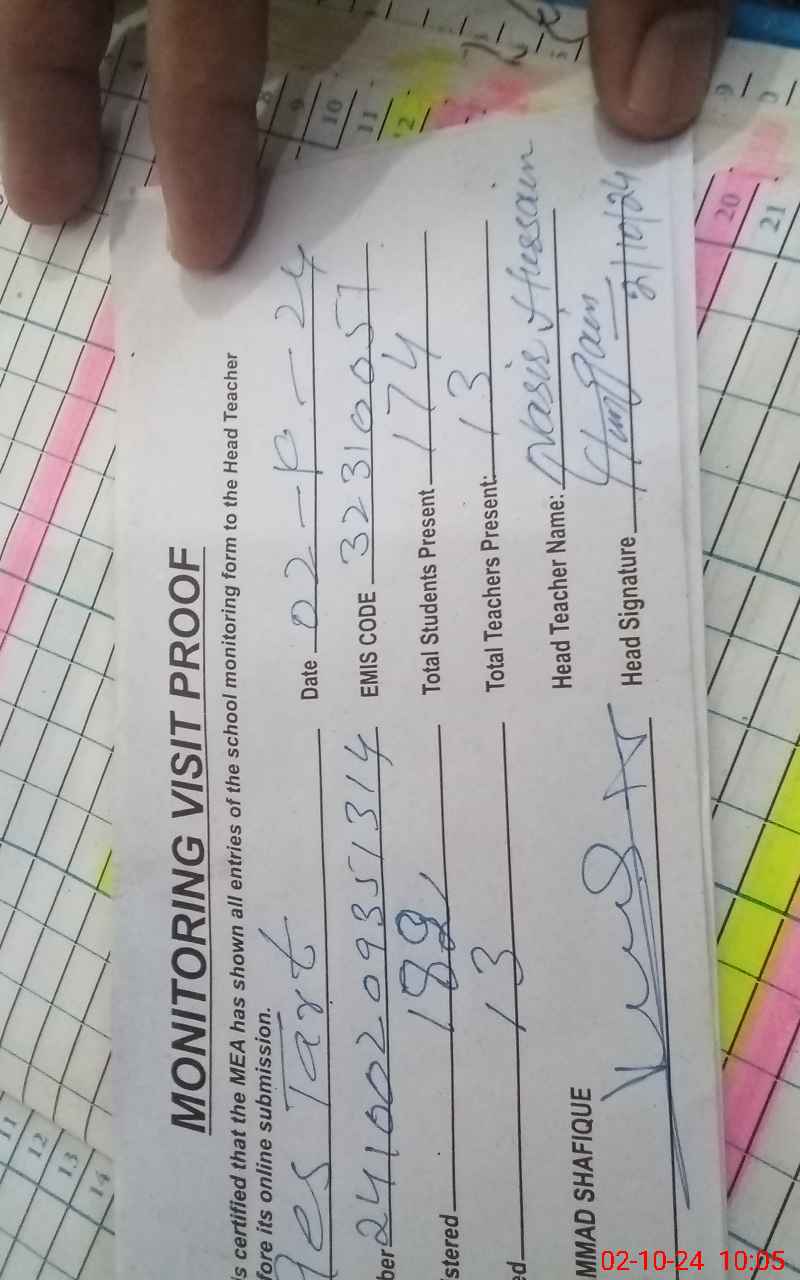 MONITORING VISIT PROOF
is certified that the MEA has shown all entries of the school monitoring form to the Head Teacher
fore its online submission.
Ges Tart Date 02-10-24
ber 24100209351314 EMIS CODE 32310057
stered 182 Total Students Present 174
ed 13 Total Teachers Present: 13
Head Teacher Name: Nasir Hussain
MMAD SHAFIQUE Head Signature 2/10/24
8 9 10 11 12
9
20 21
11 12 13 14
02-10-24 10:05